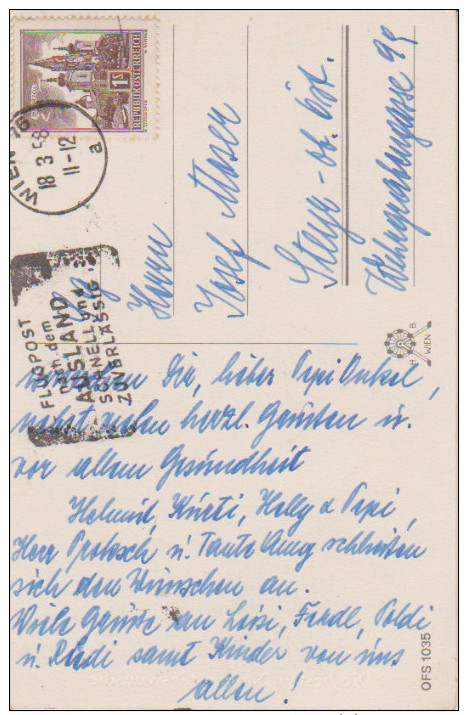 REPUBLIK ÖSTERREICH
1 S
WIEN
18 3 58
11-12
a
FLUGPOST
nach dem
AUSLAND
SCHNELL und
ZUVERLÄSSIG
Herrn
Josef Moser
Steyr - ob. öst.
99
H B
WIEN
wünschen Dir, lieber Pepi Onkel,
nebst vielen herzl. Grüßen u.
vor allem Gesundheit
Helmut, Kurti, Helly u Pepi,
Herr u. Tante schließen
sich den Wünschen an.
Viele Grüße an Loisi, Ferdl, Poldi
u. Rudi samt Kinder von uns
allen!
OFS 1035